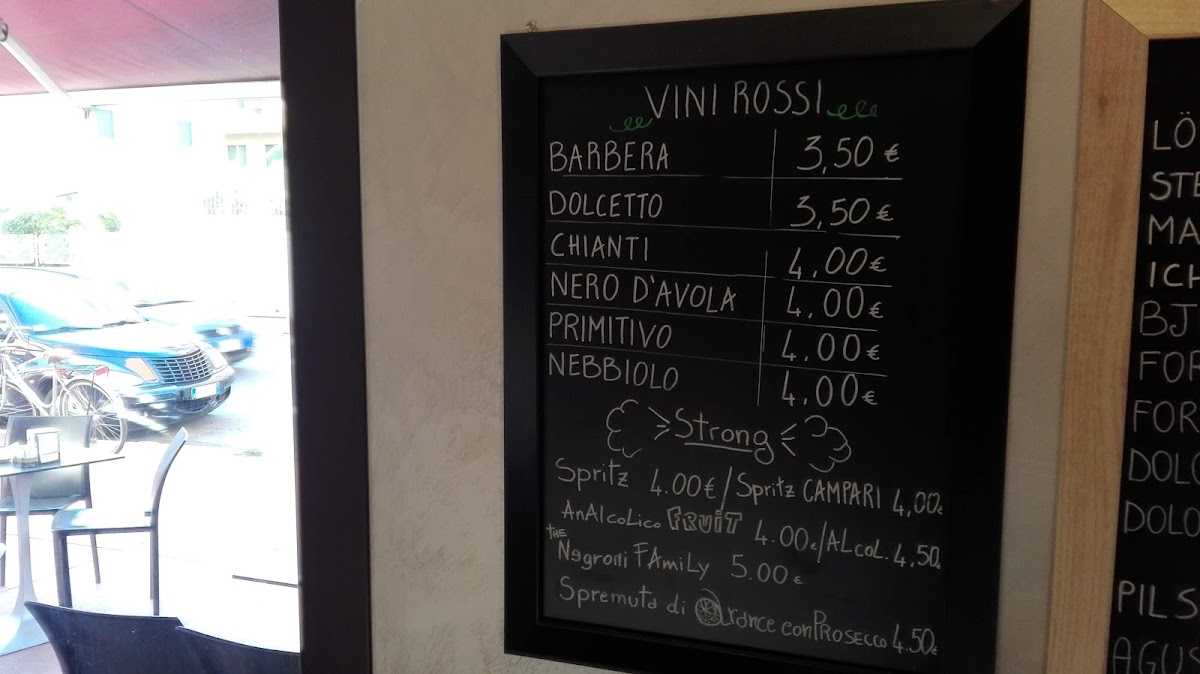 VINI ROSSI
BARBERA 3,50 €
DOLCETTO 3,50 €
CHIANTI 4,00 €
NERO D'AVOLA 4,00 €
PRIMITIVO 4.00 €
NEBBIOLO 4.00 €
Strong
Spritz 4.00 € / Spritz CAMPARI 4,00 €
AnAlcoLico FRUIT 4.00 € / ALcoL. 4,50
THE Negroni FAmiLy 5.00 €
Spremuta di Arance con PROSECCO 4.50 €
LÖ
STE
MA
ICH
BJ
FOR
FOR
DOLC
DOLC
PILS
AGUS